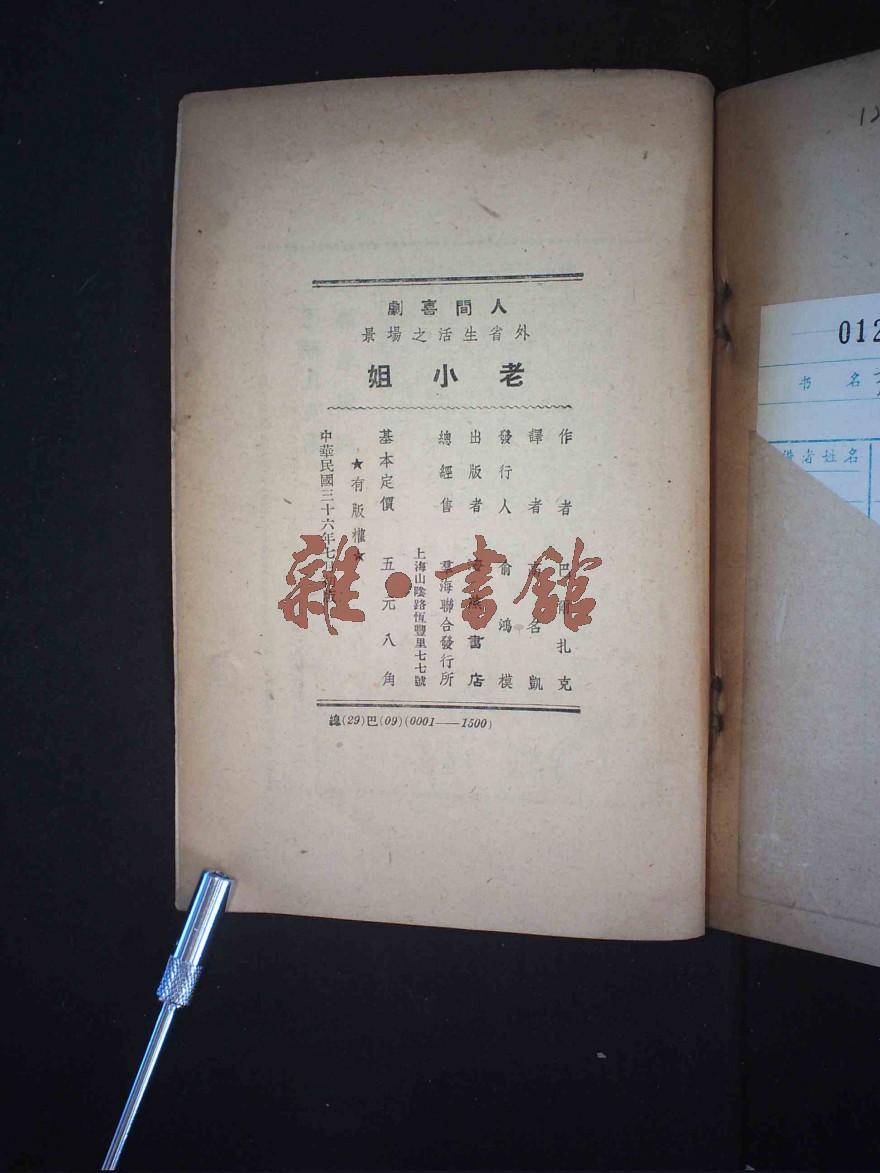 人間喜劇
外省生活之場景
老小姐
作者 巴爾扎克
譯者 高名凱
發行人 俞鴻模
出版者 海燕書店
總經售 羣海聯合發行所
上海山陰路恆豐里七七號
基本定價 五元八角
★有版權★
中華民國三十六年七月初版
總(29)巴(09)(0001——1500)
雜·書館
012
书名
借者姓名